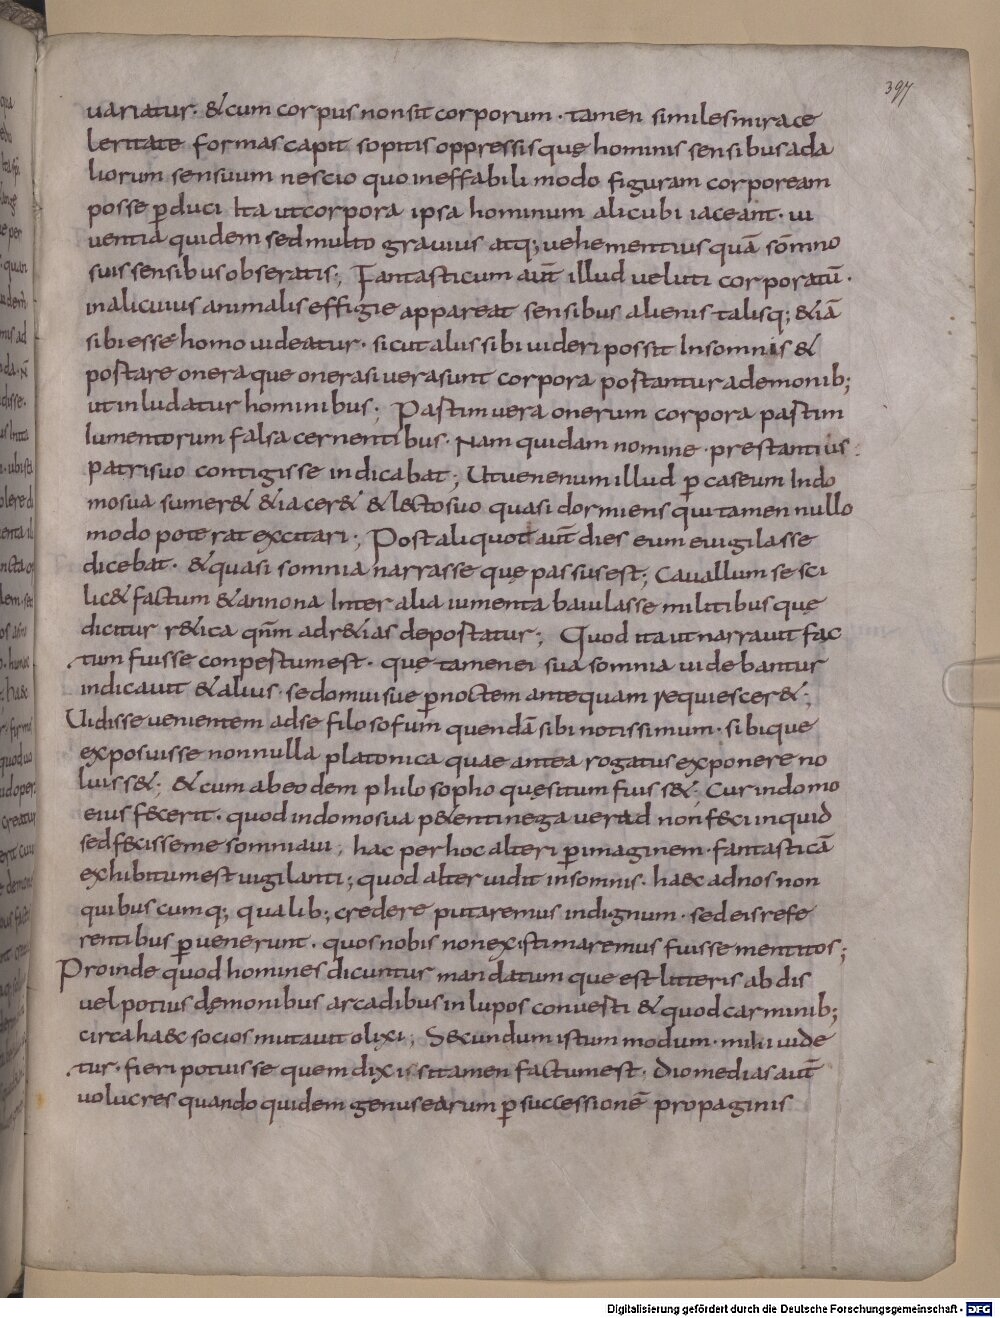 397
uariatur · & cum corpus non sit corporum · tamen similes mira ce
leritate formas capit sopitis oppressisque hominis sensibus ad a
liorum sensuum nescio quo ineffabili modo figuram corpoream
posse p̄duci Ita ut corpora ipsa hominum alicubi iaceant · ui
uentia quidem sed multo grauius atq; uehementius quā sōmno
suis sensibus obseratis; Fantasticum aūt illud ueluti corporatū ·
in alicuius animalis effigie appareat sensibus alienis · talisq; &iā
sibi esse homo uideatur · sicut alius sibi uideri possit In somnis &
portare onera que onera si uera sunt corpora portantur a demonib;
ut inludatur hominibus; Partim uera onerum corpora partim
Iumentorum falsa cernentibus · Nam quidam nomine · prestantius
patri suo contigisse indicabat; Ut uenenum illud p̄ caseum In do
mo sua sumer& & iacer& & lecto suo quasi dormiens qui tamen nullo
modo poterat excitari; Post aliquot aūt dies eum euigilasse
dicebat · & quasi somnia narrasse quę passus est; Cauallum se sci
lic& factum & annona Inter alia iumenta baiulasse militibus quę
dicitur r&ica qn̄m ad r&ias deportatur; Quod ita ut narrauit fac
tum fuisse conpertum est · quę tamen ei sua somnia uidebantur
indicauit & alius · se domui sue p̄ noctem antequam requiescer&;
Uidisse uenientem ad se filosofum quendā sibi notissimum · sibique
exposuisse nonnulla platonica quae antea rogatus exponere no
luiss&; & cum ab eodem philosopho quęsitum fuiss&; Cur in domo
eius fecerit · quod in domo sua p&enti negauerat non feci inquid
sed fecisse me somniaui; hac per hoc alteri p̄ imaginem · fantasticā
exhibitum est uigilanti; quod alter uidit in somnis · haec ad nos non
quibuscumq; qualib; credere putaremus indignum · sed eis refe
rentibus p̄uenerunt · quos nobis non existimaremus fuisse mentitos;
Proinde quod homines dicuntur mandatum que est litteris ab dis
uel potius dęmonibus arcadibus in lupos conuerti & quod carminib;
circa haec socios mutauit olixi; Secundum istum modum · mihi uide
tur · fieri potuisse quem dixi si tamen factum est · diomedias aūt
uolucres quando quidem genus earum p̄ successionē propaginis
Digitalisierung gefördert durch die Deutsche Forschungsgemeinschaft - DFG